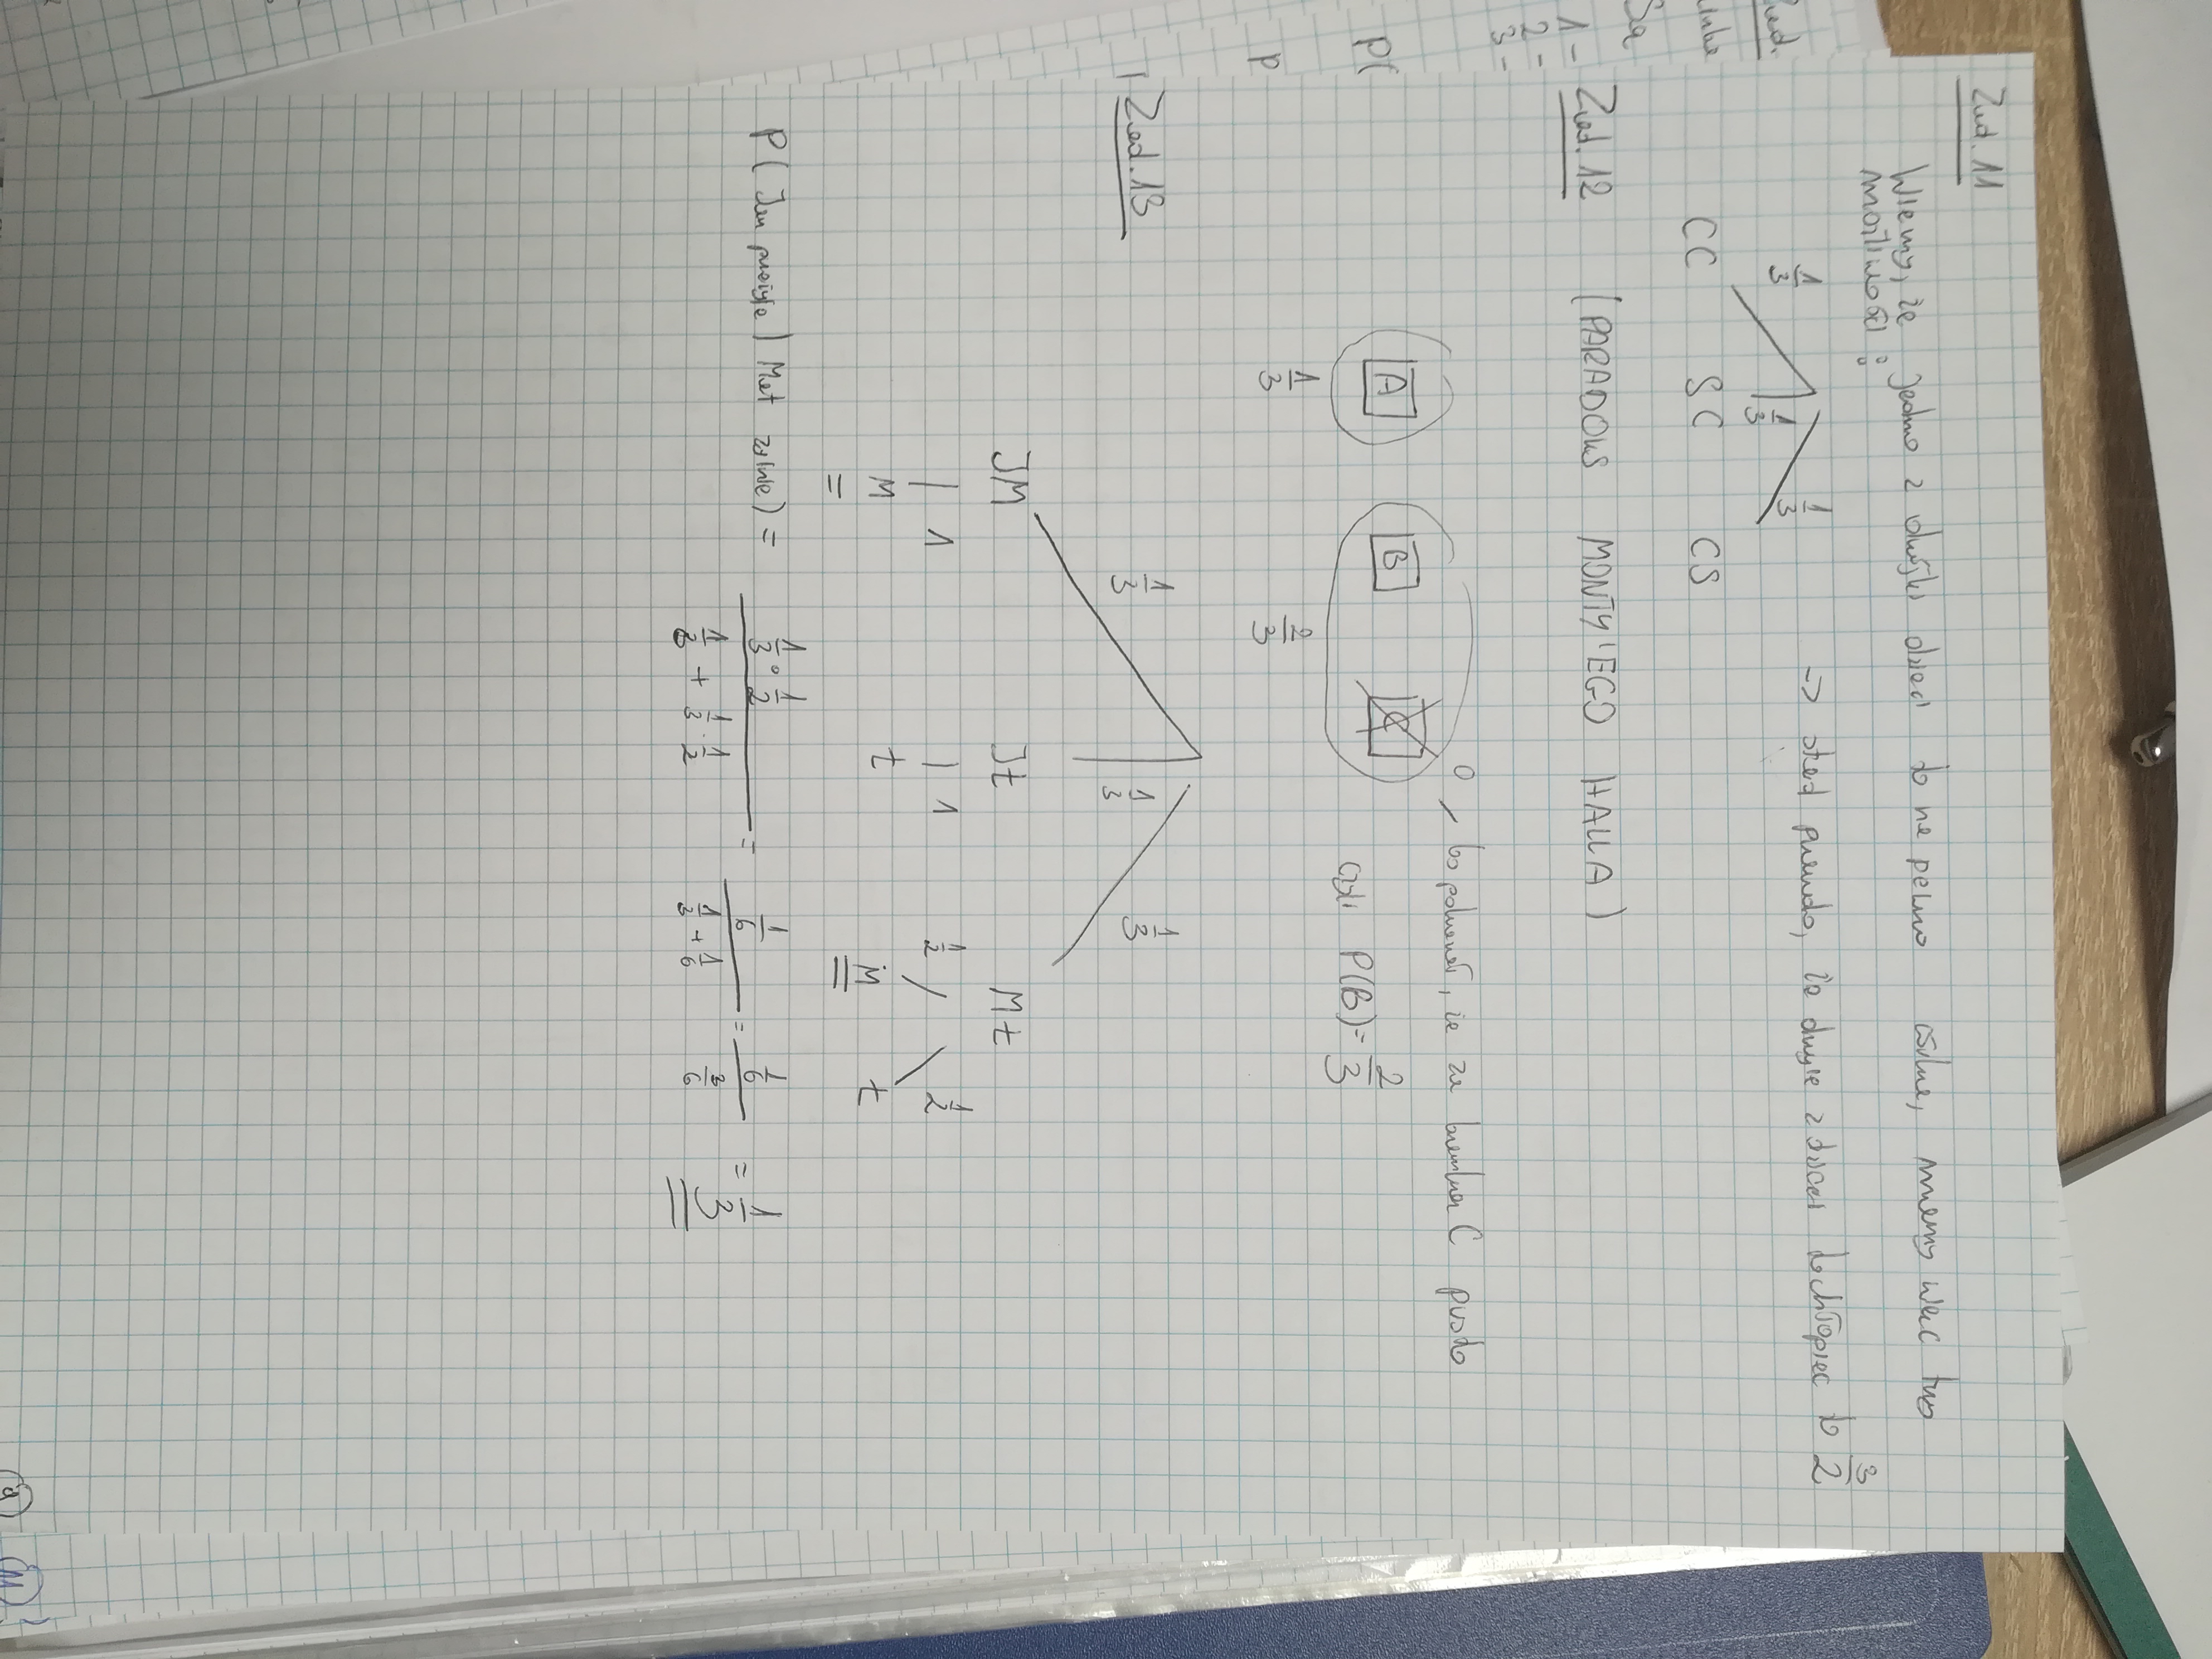 Zad. 11
Wiemy, że jedno z dwójki dzieci to na pewno córka, mamy więc trzy
możliwości:
1/3 1/3 1/3
CC SC CS
-> stąd prawdo, że drugie z dzieci to chłopiec to 3/2
Zad. 12 (PARADOKS MONTY'EGO HALLA)
0, bo pokazał, że za bramką C pusto
A B C
1/3 2/3
czyli P(B) = 2/3
Zad. 13
1/3 1/3 1/3
JM Jt Mt
1 1 1/2 1/2
M t M t
P(Jan przeżyje | Mat zginie) = (1/3 · 1/2) / (1/3 + 1/3 · 1/2) = (1/6) / (1/3 + 1/6) = (1/6) / (3/6) = 1/3
Zad.
Są
1 -
2 -
3 -
P(
P